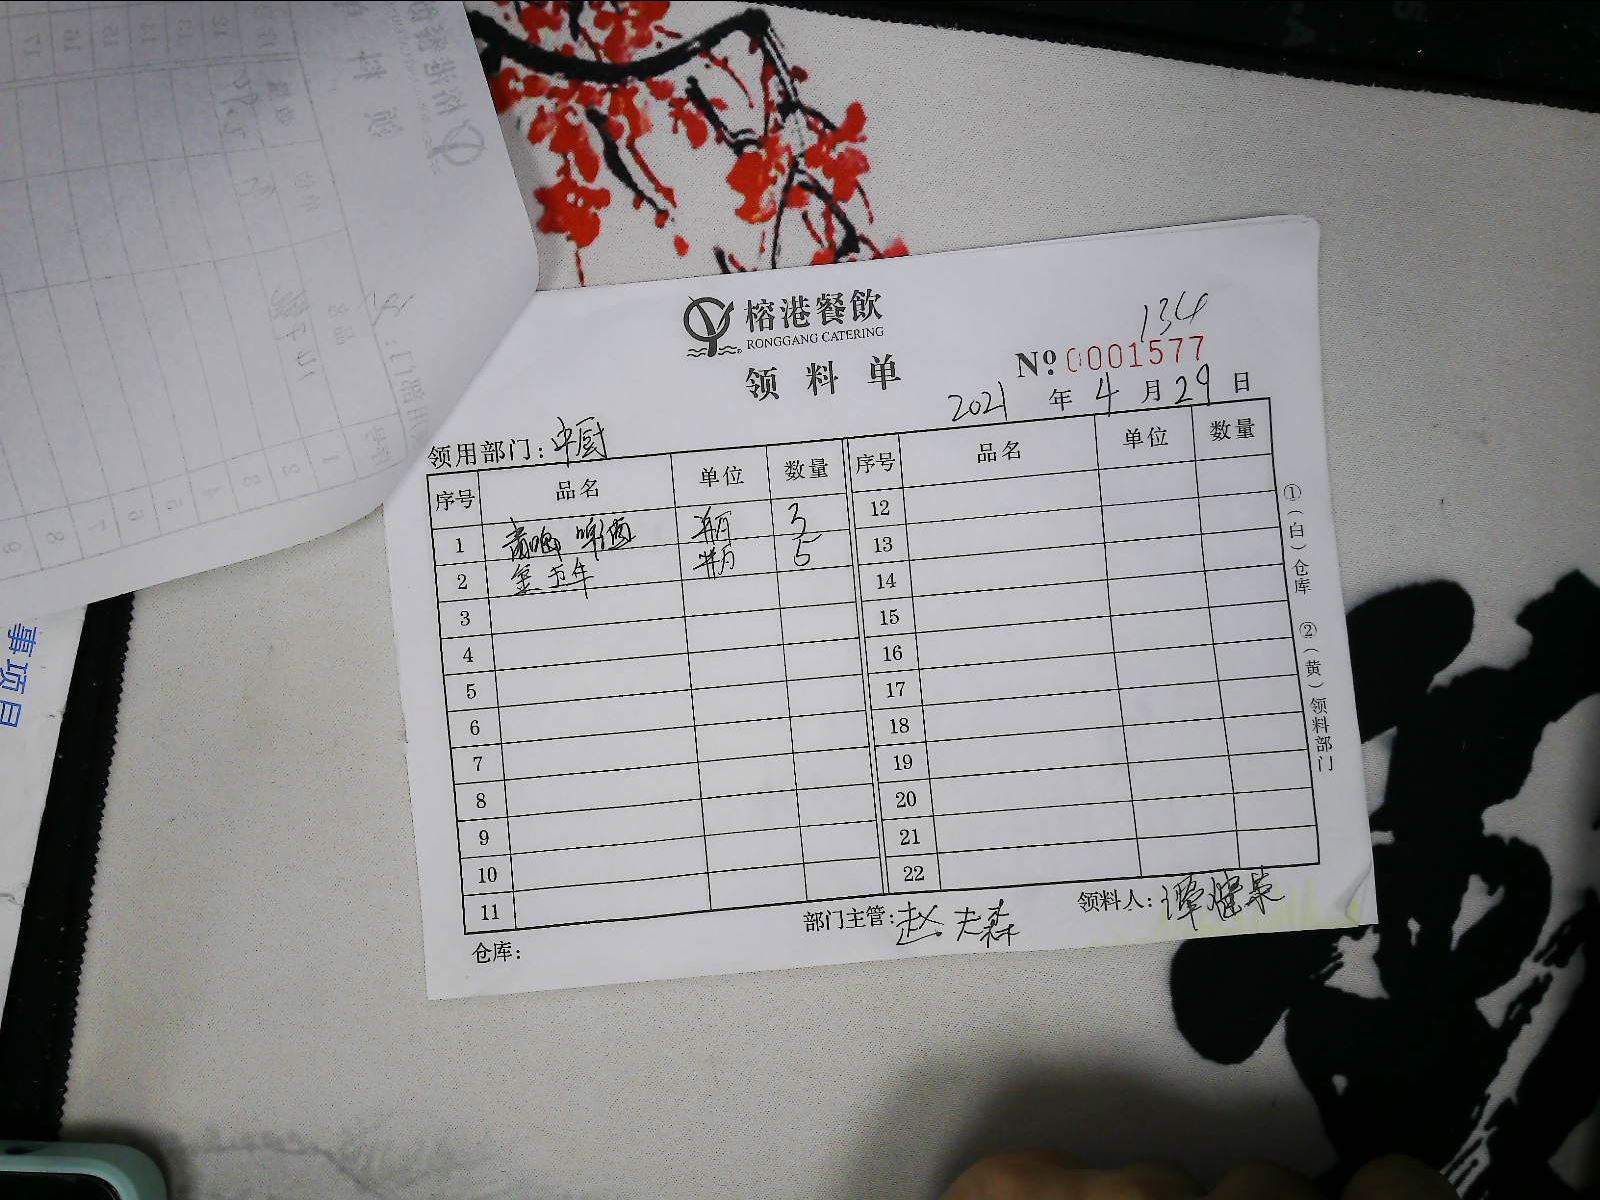 榕港餐飲
RONGGANG CATERING
134
领料单
№ 0001577
2021 年 4 月 29 日
领用部门：中厨
序号 品名 单位 数量 序号 品名 单位 数量
1 啤酒 瓶 3 12
2 金五年 瓶 5 13
3 14
4 15
5 16
6 17
7 18
8 19
9 20
10 21
11 22
仓库： 部门主管：赵夫森 领料人：谭
①（白）仓库 ②（黄）领料部门
事项目